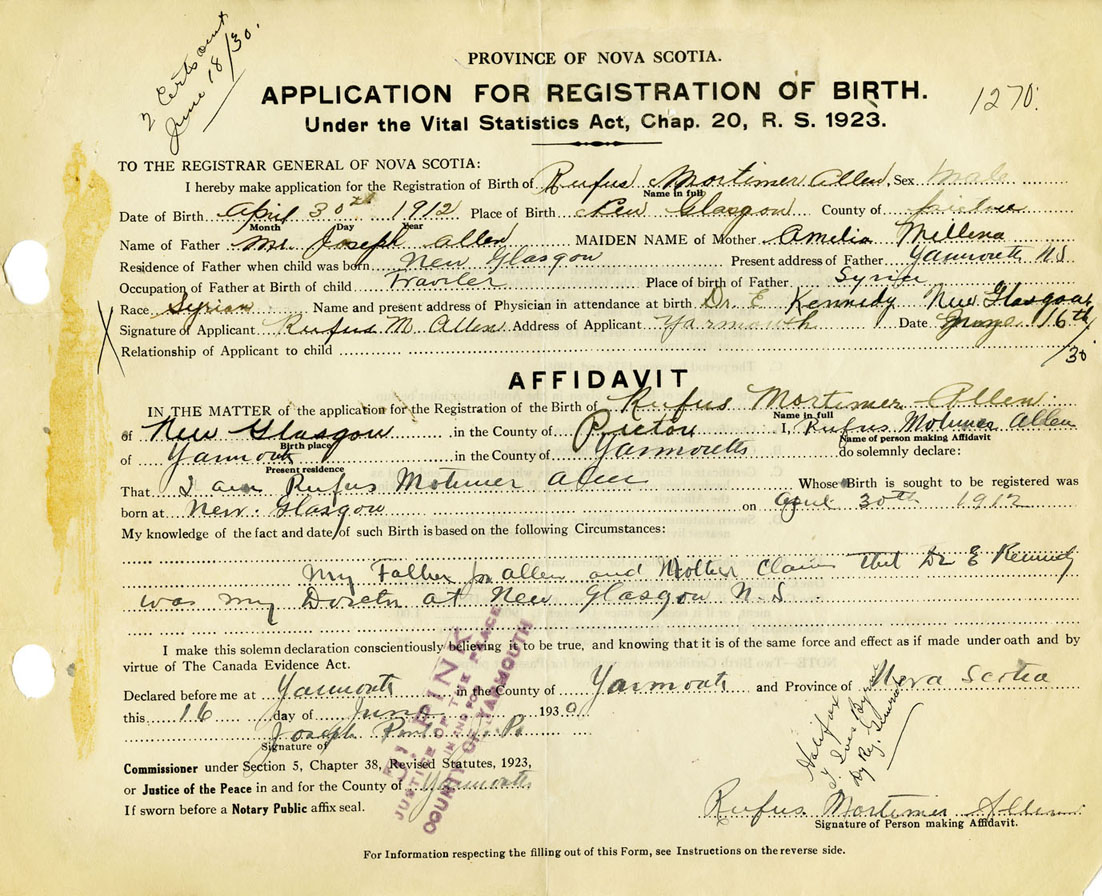 2 Certs sent
June 18/30.
PROVINCE OF NOVA SCOTIA.
APPLICATION FOR REGISTRATION OF BIRTH.
1270.
Under the Vital Statistics Act, Chap. 20, R. S. 1923.
TO THE REGISTRAR GENERAL OF NOVA SCOTIA:
I hereby make application for the Registration of Birth of Rufus Mortimer Allen, Sex Male
Name in full
Date of Birth April 30th 1912 Place of Birth New Glasgow County of Pictou
Month Day Year
Name of Father Mr. Joseph Allen MAIDEN NAME of Mother Amelia Millena
Residence of Father when child was born New Glasgow Present address of Father Yarmouth N.S.
Occupation of Father at Birth of child Travler Place of birth of Father Syria
X Race Syrian Name and present address of Physician in attendance at birth Dr. E Kennedy New Glasgow
Signature of Applicant Rufus M. Allen Address of Applicant Yarmouth Date June 16th
/30
Relationship of Applicant to child
AFFIDAVIT
IN THE MATTER of the application for the Registration of the Birth of Rufus Mortimer Allen
Name in full
of New Glasgow in the County of Pictou I, Rufus Motimer Allen
Birth place Name of person making Affidavit
of Yarmouth in the County of Yarmouth do solemnly declare:
Present residence
That I am Rufus Motimer Allen Whose Birth is sought to be registered was
born at New Glasgow on April 30th 1912
My knowledge of the fact and date of such Birth is based on the following Circumstances:
My Father Jos Allen and Mother Claim that Dr E Kennedy
was my Doctor at New Glasgow N.S.
I make this solemn declaration conscientiously believing it to be true, and knowing that it is of the same force and effect as if made under oath and by
virtue of The Canada Evidence Act.
Declared before me at Yarmouth in the County of Yarmouth and Province of Nova Scotia
this 16 day of June 1930
Joseph
Signature of
Commissioner under Section 5, Chapter 38, Revised Statutes, 1923,
or Justice of the Peace in and for the County of Yarmouth
If sworn before a Notary Public affix seal.
J. PINK
JUSTICE OF THE PEACE
IN AND FOR THE
COUNTY OF YARMOUTH
Halifax
Dy Reg. General
Rufus Mortimer Allen
Signature of Person making Affidavit.
For Information respecting the filling out of this Form, see Instructions on the reverse side.